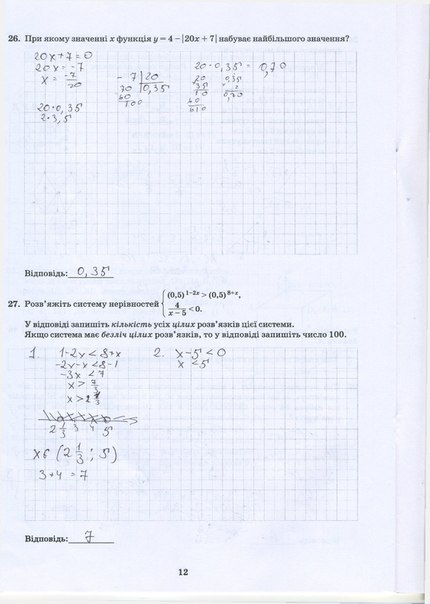 26. При якому значенні x функція y = 4 – |20x + 7| набуває найбільшого значення?
20x+7=0
20x = -7
x = -7/20
20·0,35
2·3,5
- 7 | 20
70 | 0,35
60
100
20·0,35 =
0,70
20
35
10
60
0,35
2
0,70
Відповідь: 0,35
27. Розв'яжіть систему нерівностей { (0,5)^(1–2x) > (0,5)^(8+x),
4/(x – 5) < 0.
У відповіді запишіть кількість усіх цілих розв'язків цієї системи.
Якщо система має безліч цілих розв'язків, то у відповіді запишіть число 100.
1. 1-2x < 8+x
-2x-x < 8-1
-3x < 7
x > 7/3
x > 2 1/3
2. x-5 < 0
x < 5
2 1/3 3 4 5
x є (2 1/3 ; 5)
3+4 = 7
Відповідь: 7
12